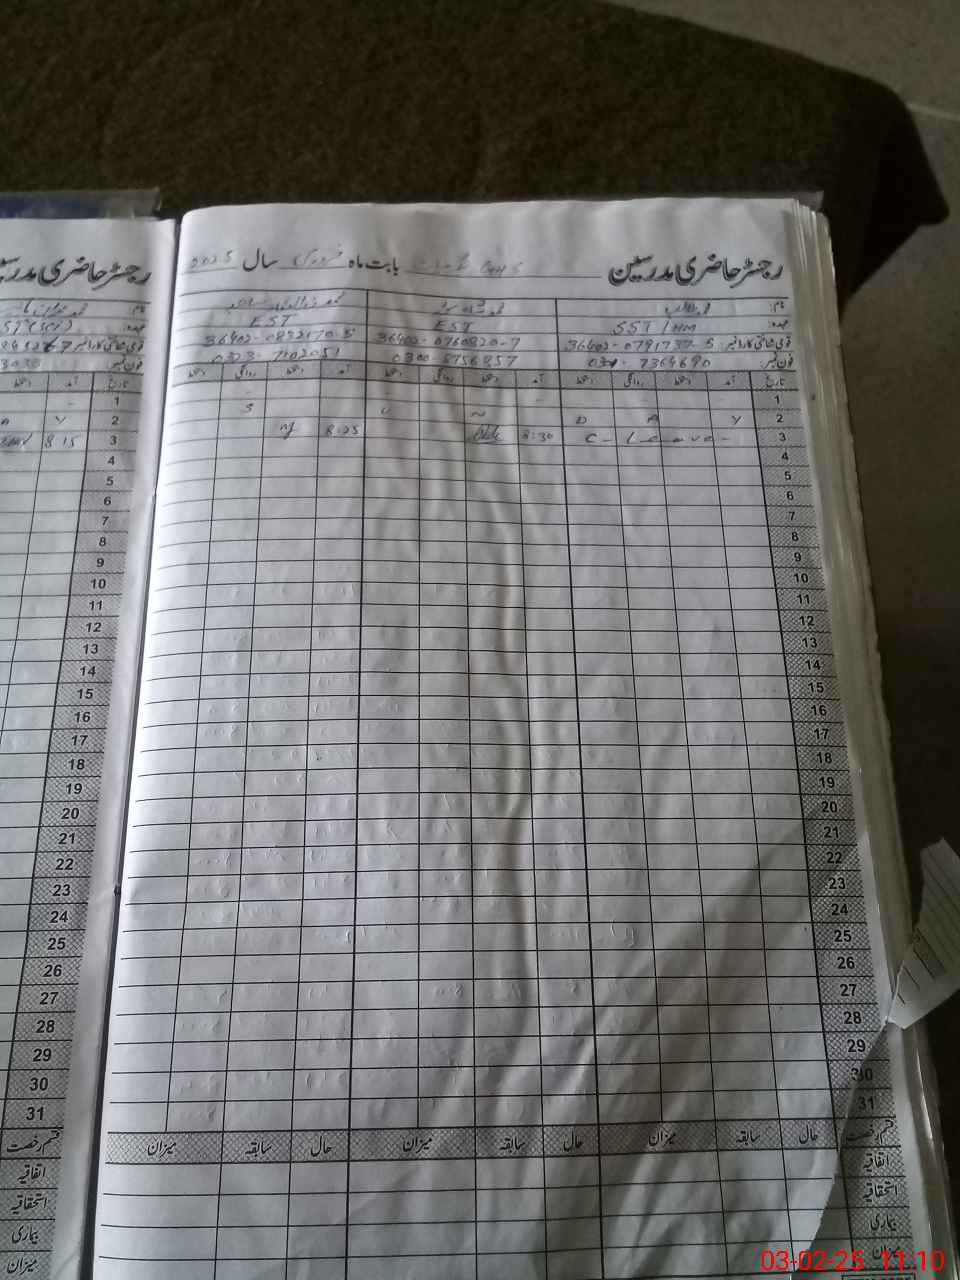 رجسٹر حاضری مدرسین GHS بابت ماہ فروری سال 2025
نام:
عہدہ: SST/HM EST EST
قومی شناختی کارڈ نمبر: 36402-0791737-5 36402-0760820-7 36402-0832170-5
فون نمبر: 7364690 0300-8756857 0323-7102051
تاریخ آمد دستخط روانگی دستخط آمد دستخط روانگی دستخط آمد دستخط روانگی دستخط
1
2 Y A D N U S
3 C-Leave- 8:30 8:25
4
5
6
7
8
9
10
11
12
13
14
15
16
17
18
19
20
21
22
23
24
25
26
27
28
29
30
31
قسم رخصت حال سابقہ میزان حال سابقہ میزان حال سابقہ میزان
اتفاقیہ
استحقاقیہ
بیماری
میزان
رجسٹر حاضری مدرسین
نام:
عہدہ:
قومی شناختی کارڈ نمبر:
فون نمبر: 3030
تاریخ آمد دستخط
1
2 Y A
3 8:15
4
5
6
7
8
9
10
11
12
13
14
15
16
17
18
19
20
21
22
23
24
25
26
27
28
29
30
31
قسم رخصت
اتفاقیہ
استحقاقیہ
بیماری
میزان
03-02-25 11:10